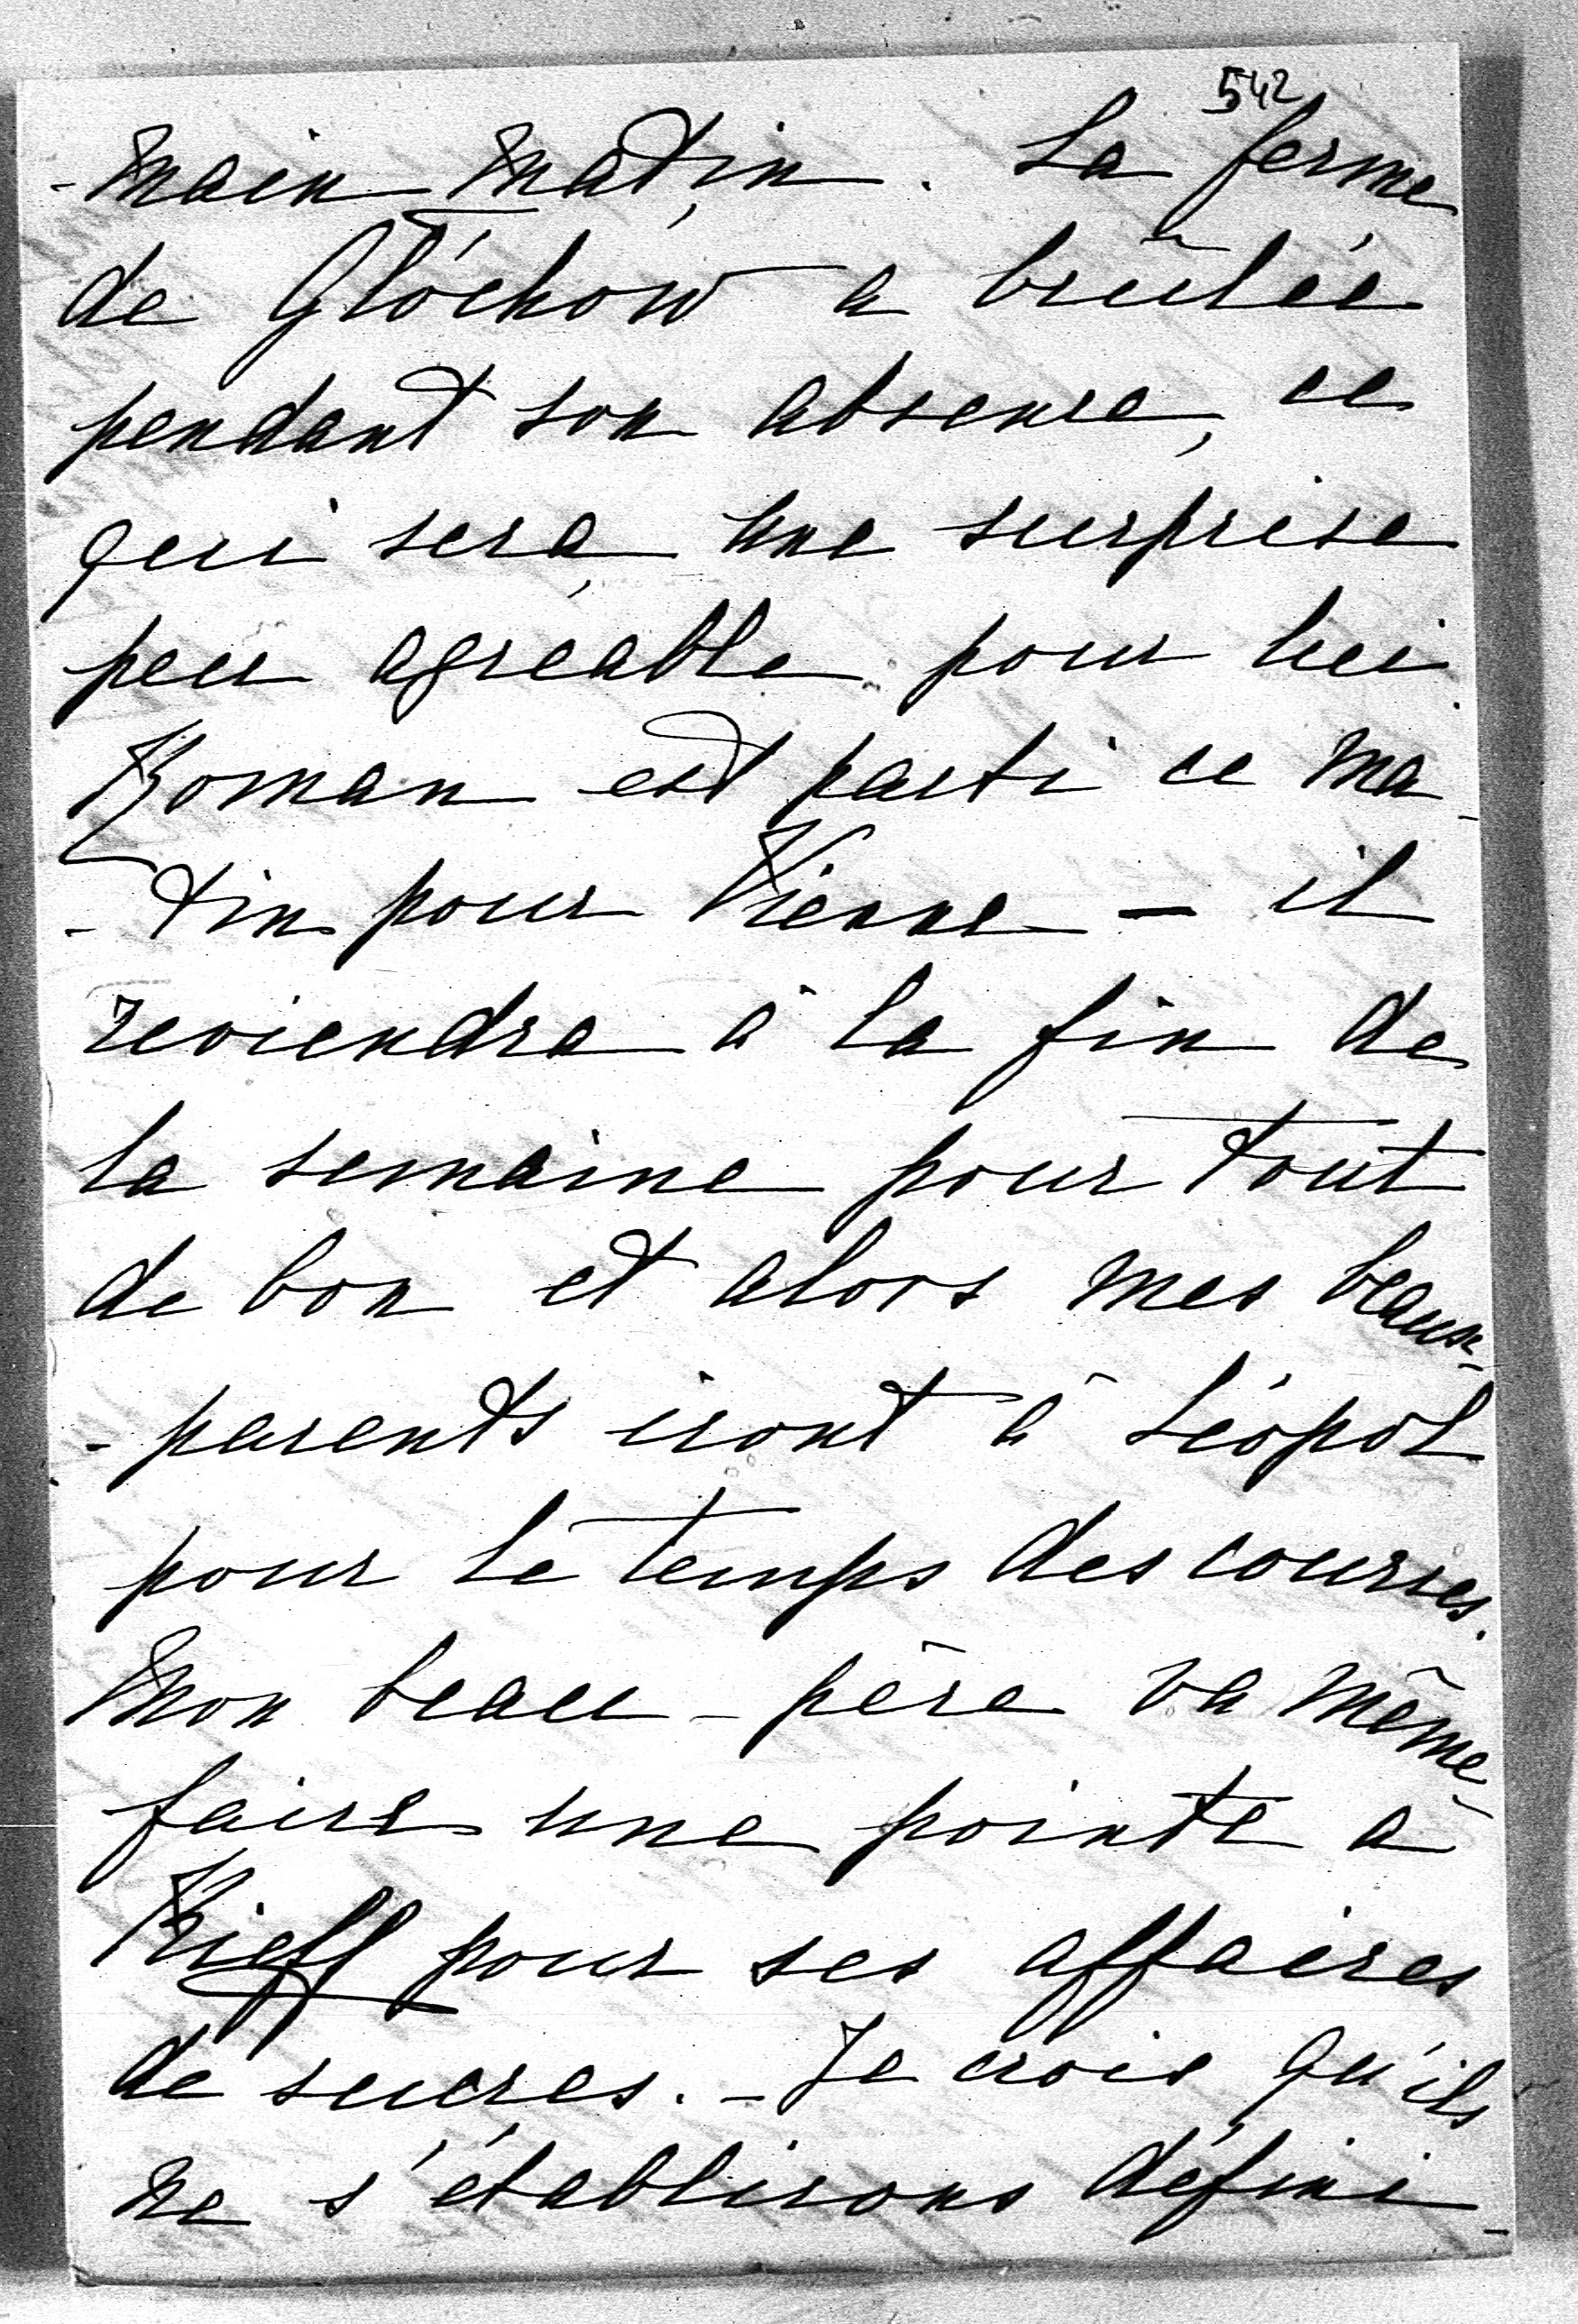 542
-main matin. La ferme
de Glóchow a brûlée
pendant son absence, ce
qui sera une surprise
peu agréable pour lui.
Roman est parti ce ma-
-tin pour Vienne – il
reviendra à la fin de
la semaine pour tout
de bon et alors mes beaux-
-parents iront à Léopol
pour le temps des courses.
Mon beau-père va même
faire une pointe à
Kieff pour ses affaires
de sucres. – Je crois qu'ils
ne s'établirons défini-